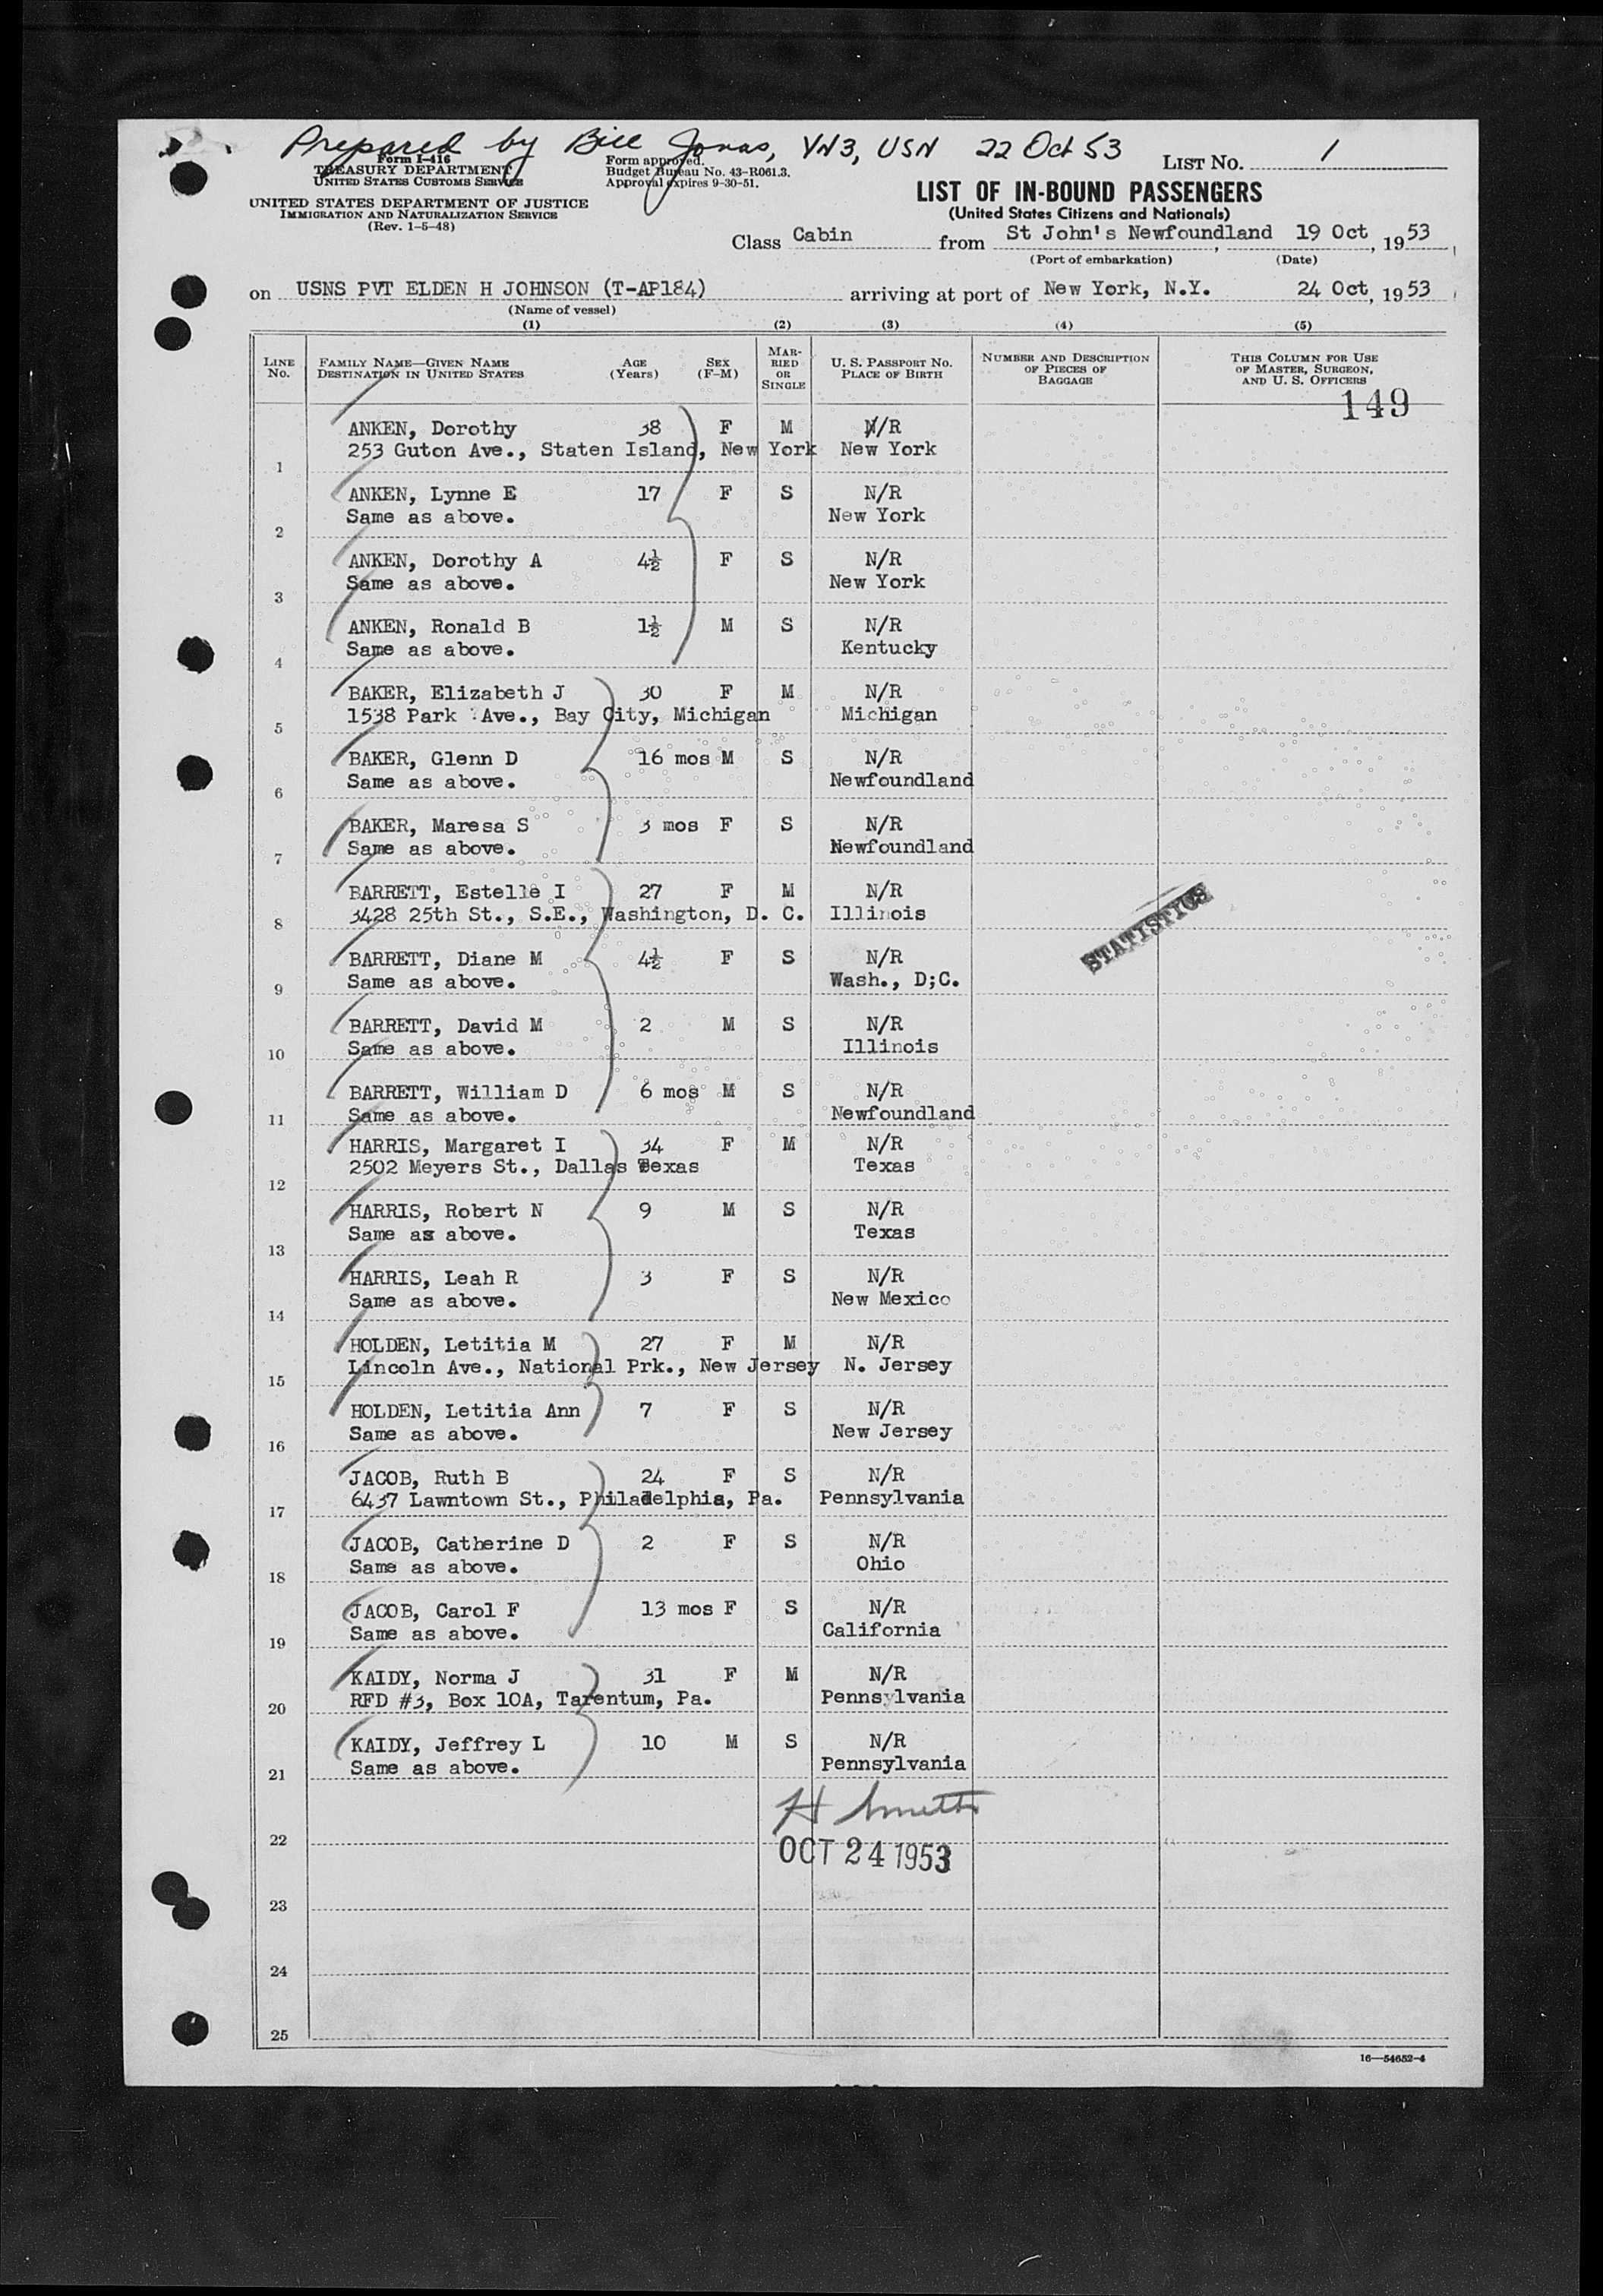 Prepared by Bill Jonas, YN3, USN 22 Oct 53
LIST No. 1
Form I-416
TREASURY DEPARTMENT
UNITED STATES CUSTOMS SERVICE
Form approved.
Budget Bureau No. 43-R061.3.
Approval expires 9-30-51.
UNITED STATES DEPARTMENT OF JUSTICE
IMMIGRATION AND NATURALIZATION SERVICE
(Rev. 1-5-48)
LIST OF IN-BOUND PASSENGERS
(United States Citizens and Nationals)
Class Cabin from St John's Newfoundland, 19 Oct, 1953
(Port of embarkation) (Date)
on USNS PVT ELDEN H JOHNSON (T-AP184) arriving at port of New York, N.Y. 24 Oct, 1953
(Name of vessel)
(1) (2) (3) (4) (5)
LINE No.
FAMILY NAME—GIVEN NAME
DESTINATION IN UNITED STATES
AGE (Years)
SEX (F-M)
MARRIED OR SINGLE
U. S. PASSPORT No.
PLACE OF BIRTH
NUMBER AND DESCRIPTION OF PIECES OF BAGGAGE
THIS COLUMN FOR USE OF MASTER, SURGEON, AND U. S. OFFICERS
149
ANKEN, Dorothy 38 F M N/R
1 253 Guton Ave., Staten Island, New York New York
ANKEN, Lynne E 17 F S N/R
2 Same as above. New York
ANKEN, Dorothy A 4½ F S N/R
3 Same as above. New York
ANKEN, Ronald B 1½ M S N/R
4 Same as above. Kentucky
BAKER, Elizabeth J 30 F M N/R
5 1538 Park Ave., Bay City, Michigan Michigan
BAKER, Glenn D 16 mos M S N/R
6 Same as above. Newfoundland
BAKER, Maresa S 3 mos F S N/R
7 Same as above. Newfoundland
BARRETT, Estelle I 27 F M N/R
8 3428 25th St., S.E., Washington, D. C. Illinois
STATISTICS
BARRETT, Diane M 4½ F S N/R
9 Same as above. Wash., D;C.
BARRETT, David M 2 M S N/R
10 Same as above. Illinois
BARRETT, William D 6 mos M S N/R
11 Same as above. Newfoundland
HARRIS, Margaret I 34 F M N/R
12 2502 Meyers St., Dallas Texas Texas
HARRIS, Robert N 9 M S N/R
13 Same as above. Texas
HARRIS, Leah R 3 F S N/R
14 Same as above. New Mexico
HOLDEN, Letitia M 27 F M N/R
15 Lincoln Ave., National Prk., New Jersey N. Jersey
HOLDEN, Letitia Ann 7 F S N/R
16 Same as above. New Jersey
JACOB, Ruth B 24 F S N/R
17 6437 Lawntown St., Philadelphia, Pa. Pennsylvania
JACOB, Catherine D 2 F S N/R
18 Same as above. Ohio
JACOB, Carol F 13 mos F S N/R
19 Same as above. California
KAIDY, Norma J 31 F M N/R
20 RFD #3, Box 10A, Tarentum, Pa. Pennsylvania
KAIDY, Jeffrey L 10 M S N/R
21 Same as above. Pennsylvania
H
22 OCT 24 1953
23
24
25
16—54652-4